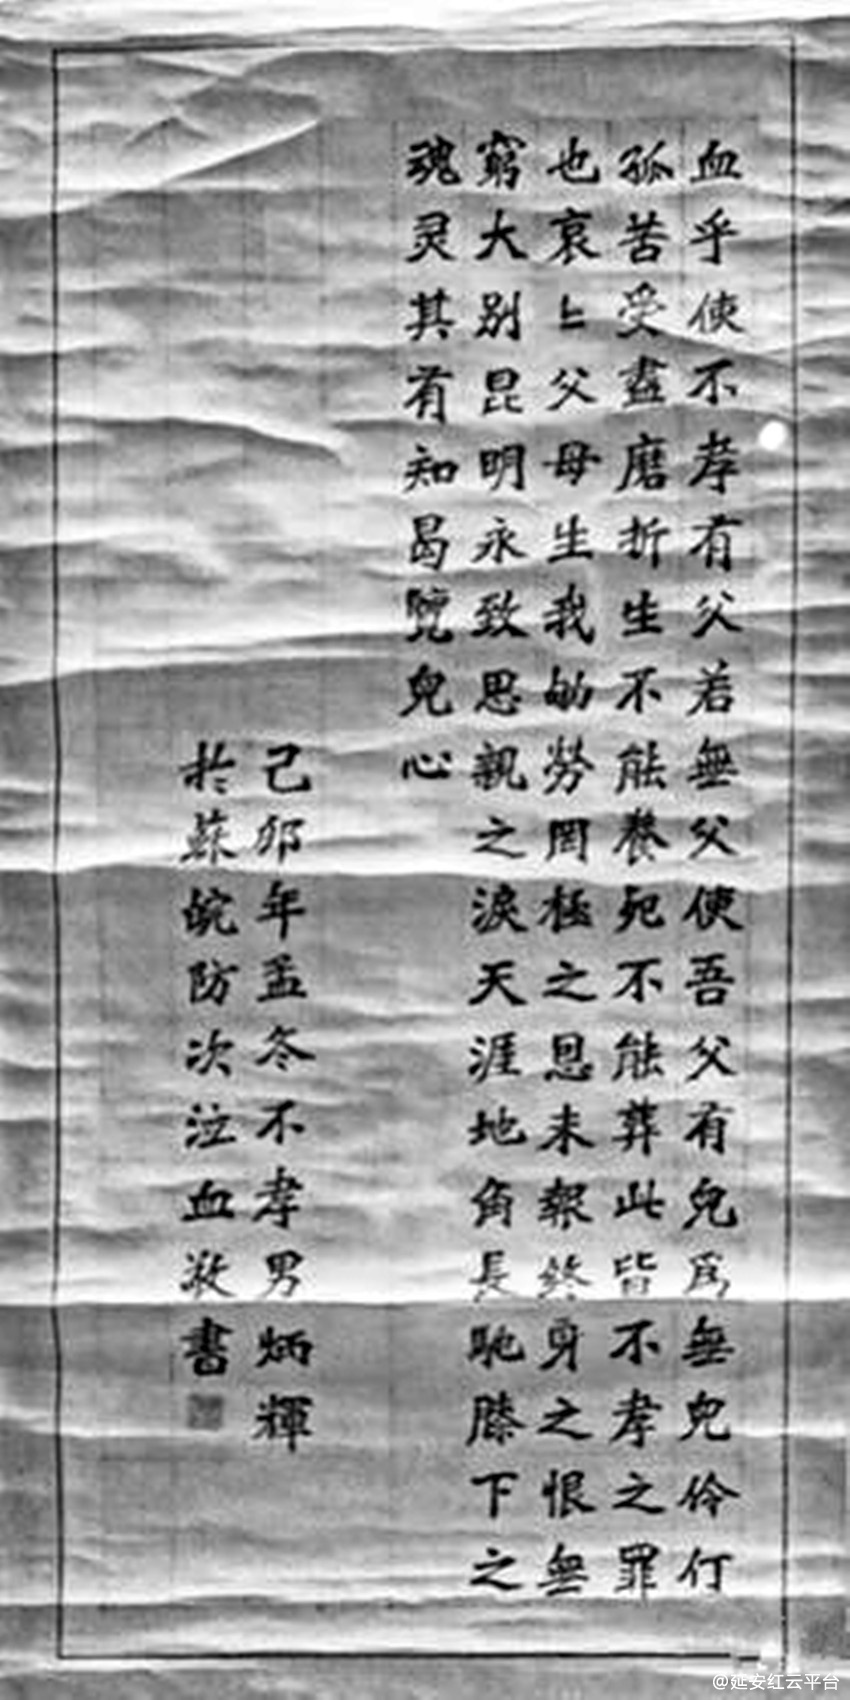 血乎使不孝有父若無父使吾父有兒爲無兒伶仃
孤苦受盡磨折生不能養死不能葬此皆不孝之罪
也哀匕父母生我劬勞罔極之恩未報終身之恨無
窮大别昆明永致思親之淚天涯地角長馳膝下之
魂灵其有知曷覽兒心
己卯年孟冬不孝男炳輝
於蘇皖防次泣血敬書
@延安红云平台